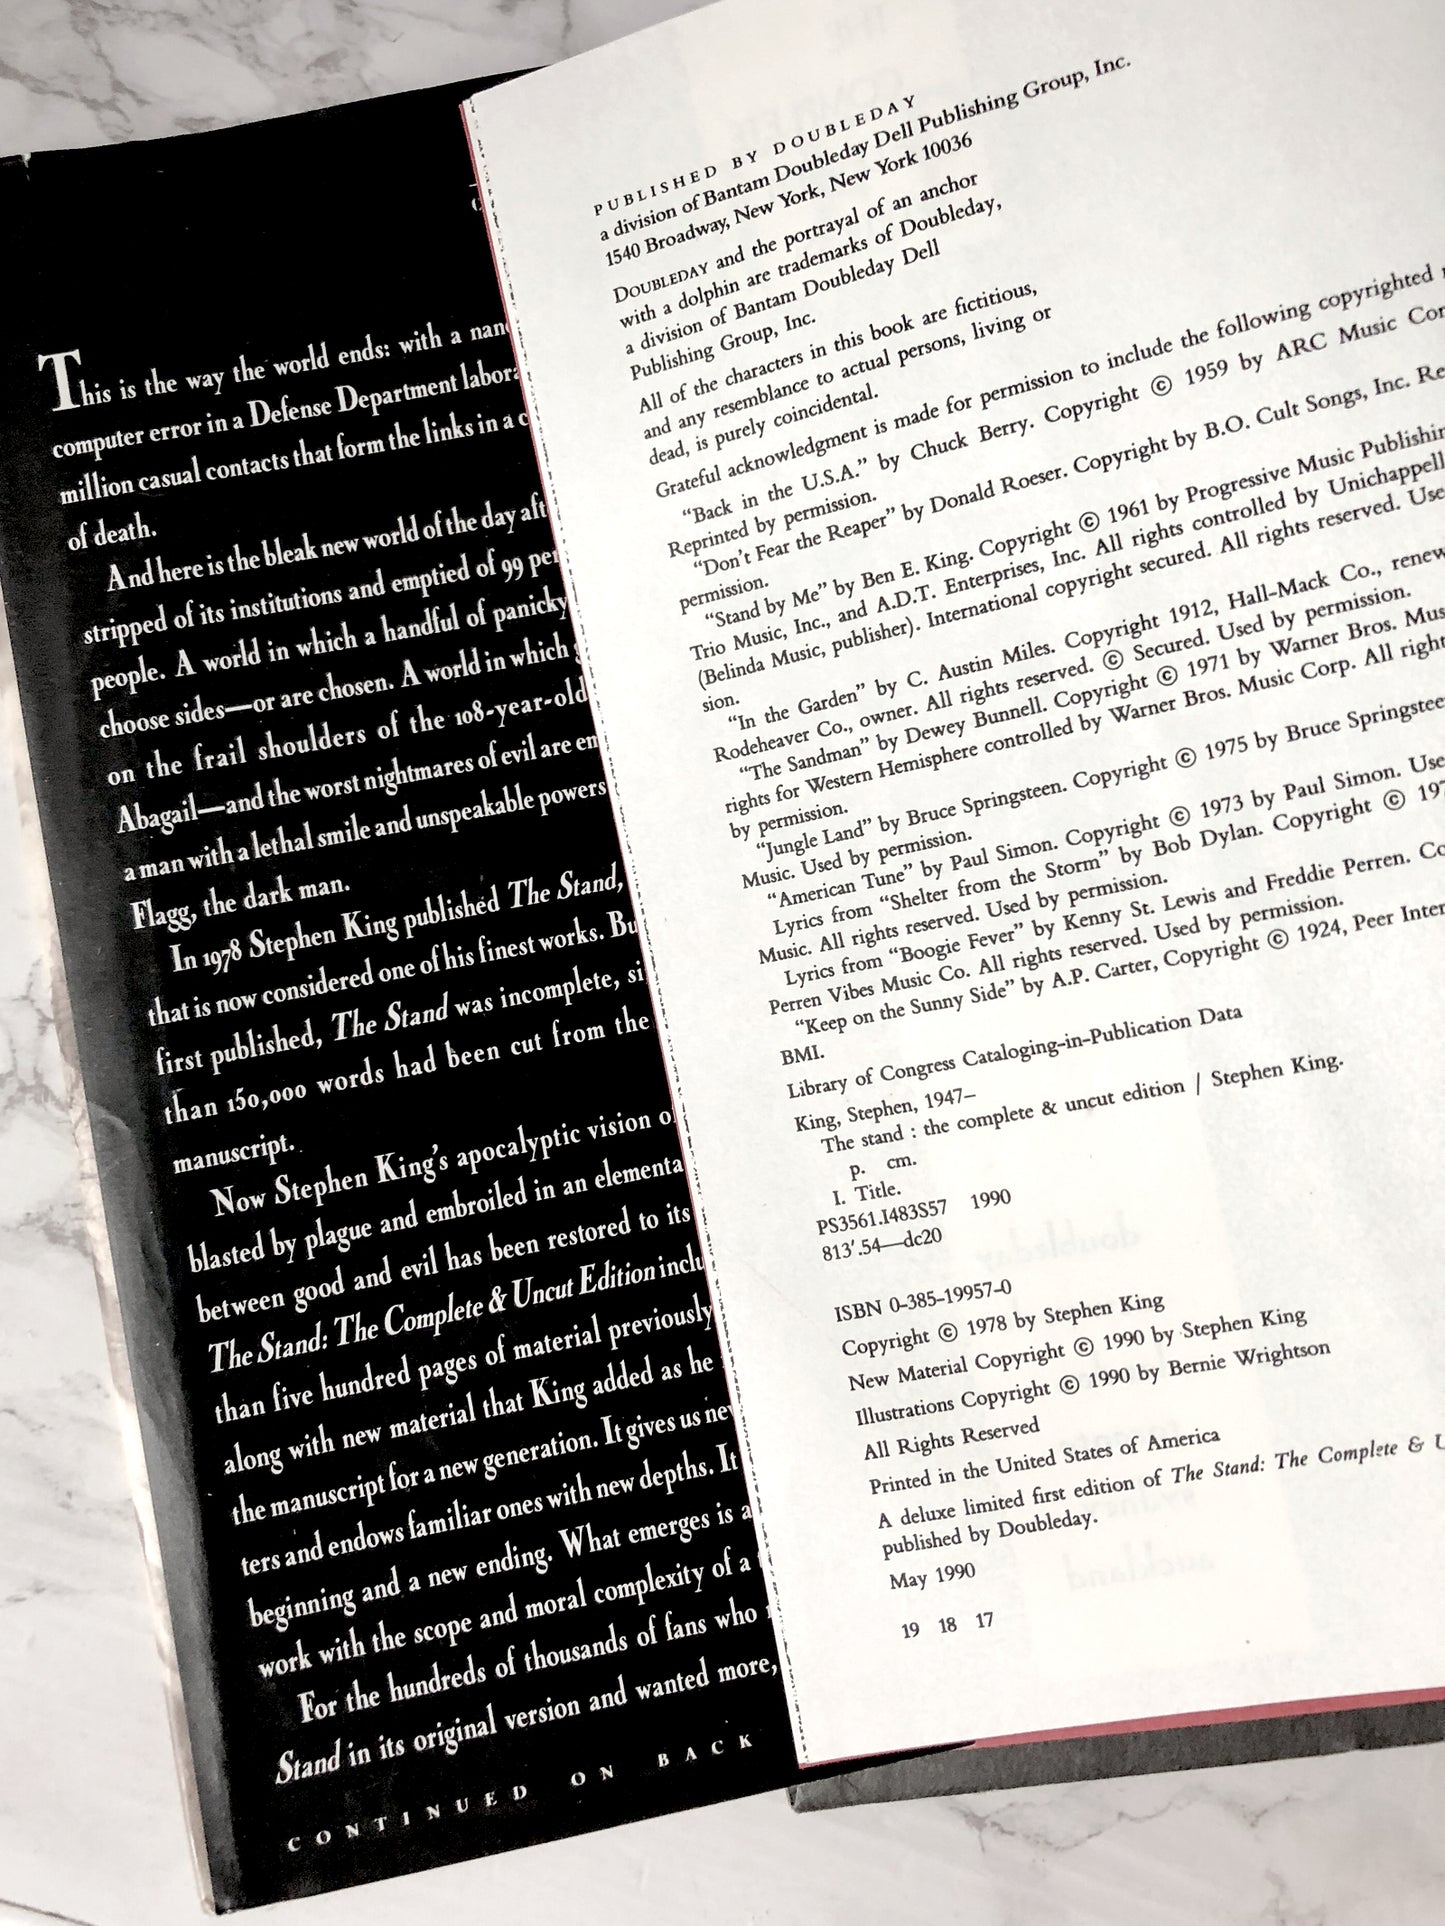 This is the way the world ends: with a
computer error in a Defense Department
million casual contacts that form the links in a
of death.
And here is the bleak new world of the day
stripped of its institutions and emptied of 99
people. A world in which a handful of panicky
choose sides—or are chosen. A world in which
on the frail shoulders of the 108-year-old
Abagail—and the worst nightmares of evil are
a man with a lethal smile and unspeakable powers
Flagg, the dark man.
In 1978 Stephen King published The Stand,
that is now considered one of his finest works.
first published, The Stand was incomplete,
than 150,000 words had been cut from the
manuscript.
Now Stephen King's apocalyptic vision
blasted by plague and embroiled in an
between good and evil has been restored to its
The Stand: The Complete & Uncut Edition
than five hundred pages of material previously
along with new material that King added as he
the manuscript for a new generation. It gives us
ters and endows familiar ones with new depths. It
beginning and a new ending. What emerges is a
work with the scope and moral complexity of a
For the hundreds of thousands of fans who
Stand in its original version and wanted more,
CONTINUED ON BACK
PUBLISHED BY DOUBLEDAY
a division of Bantam Doubleday Dell Publishing Group, Inc.
1540 Broadway, New York, New York 10036
DOUBLEDAY and the portrayal of an anchor
with a dolphin are trademarks of Doubleday,
a division of Bantam Doubleday Dell
Publishing Group, Inc.
All of the characters in this book are fictitious,
and any resemblance to actual persons, living or
dead, is purely coincidental.
Grateful acknowledgment is made for permission to include the following copyrighted
“Back in the U.S.A.” by Chuck Berry. Copyright © 1959 by ARC Music
Reprinted by permission.
“Don't Fear the Reaper” by Donald Roeser. Copyright by B.O. Cult Songs, Inc.
permission.
“Stand by Me” by Ben E. King. Copyright © 1961 by Progressive Music
Trio Music, Inc., and A.D.T. Enterprises, Inc. All rights controlled by Unichappell
(Belinda Music, publisher). International copyright secured. All rights reserved.
sion.
“In the Garden” by C. Austin Miles. Copyright 1912, Hall-Mack Co.,
Rodeheaver Co., owner. All rights reserved. © Secured. Used by permission.
“The Sandman” by Dewey Bunnell. Copyright © 1971 by Warner Bros.
rights for Western Hemisphere controlled by Warner Bros. Music Corp. All
by permission.
“Jungle Land” by Bruce Springsteen. Copyright © 1975 by Bruce
Music. Used by permission.
“American Tune” by Paul Simon. Copyright © 1973 by Paul Simon.
Lyrics from “Shelter from the Storm” by Bob Dylan. Copyright ©
Music. All rights reserved. Used by permission.
Lyrics from “Boogie Fever” by Kenny St. Lewis and Freddie Perren.
Perren Vibes Music Co. All rights reserved. Used by permission.
“Keep on the Sunny Side” by A.P. Carter, Copyright © 1924, Peer
BMI.
Library of Congress Cataloging-in-Publication Data
King, Stephen, 1947–
The stand : the complete & uncut edition / Stephen King.
p. cm.
I. Title.
PS3561.I483S57 1990
813'.54—dc20
ISBN 0-385-19957-0
Copyright © 1978 by Stephen King
New Material Copyright © 1990 by Stephen King
Illustrations Copyright © 1990 by Bernie Wrightson
All Rights Reserved
Printed in the United States of America
A deluxe limited first edition of The Stand: The Complete &
published by Doubleday.
May 1990
19 18 17